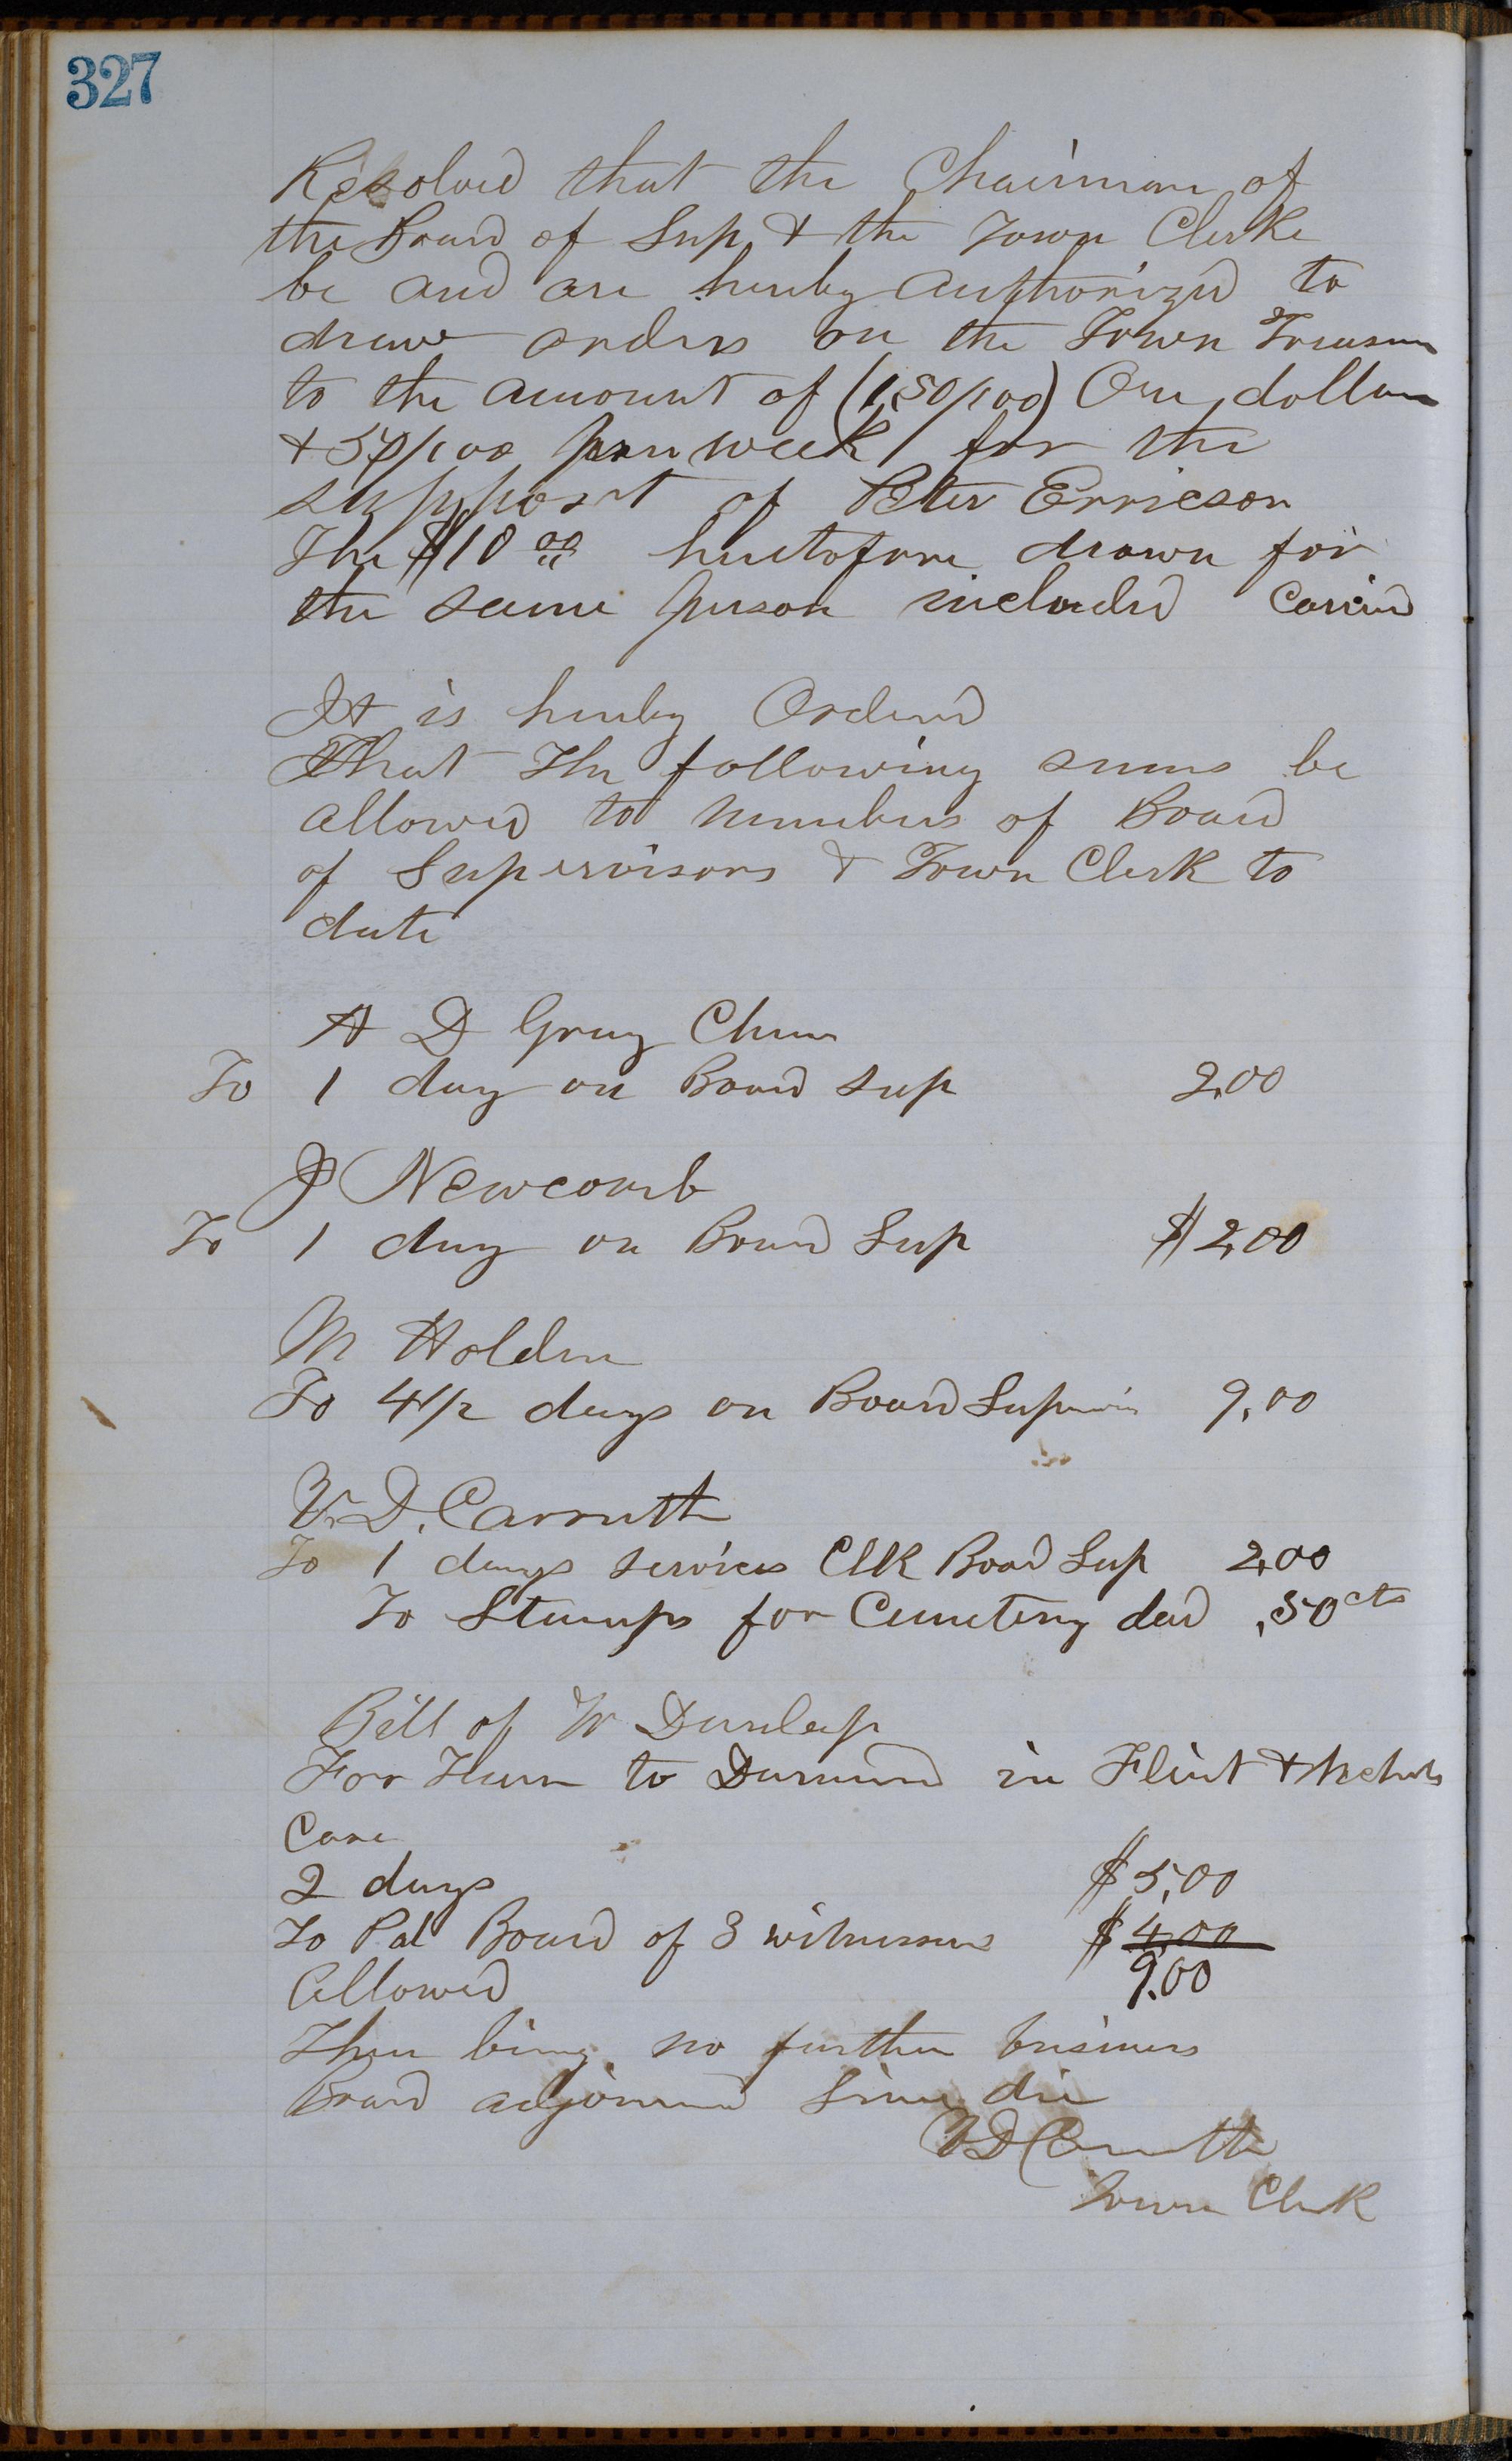 327
Resolved that the Chairman of
the Board of Sup & the Town Clerke
be and are hereby authorized to
draw orders on the Town Treasurer
to the amount of (1,50/100) One dollar
& 50/100 per week for the
support of Peter Erricson
The $10 00 heretofore drawn for
the same person included Carried
It is hereby Ordered
That The following sums be
allowed to members of Board
of Supervisors & Town Clerk to
date
A D Gray Chm
To 1 day on Board Sup 2,00
J Newcomb
To 1 day on Board Sup $2,00
M Holden
To 4 1/2 days on Board Supervis 9,00
V. D. Carruth
To 1 days services Clk Board Sup 2,00
To Stamps for Cemetery deed ,50 cts
Bill of W Dunlap
For Team to Durand in Flint &
Case
2 days $5,00
To Pd Board of 3 witnesses $4,00
Allowed 9.00
There being no further business
Board adjourned Sine die
V D Carruth
Town Clerk